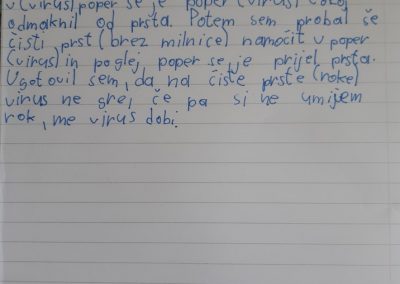 v (virus), poper se je poper (virus)
odmaknil od prsta. Potem sem probal še
čisti prst (brez milnice) namočit v poper
(virus) in poglej, poper se je prijel prsta.
Ugotovil sem, da na čiste prste (roke)
virus ne gre, če pa si ne umijem
rok, me virus dobi.